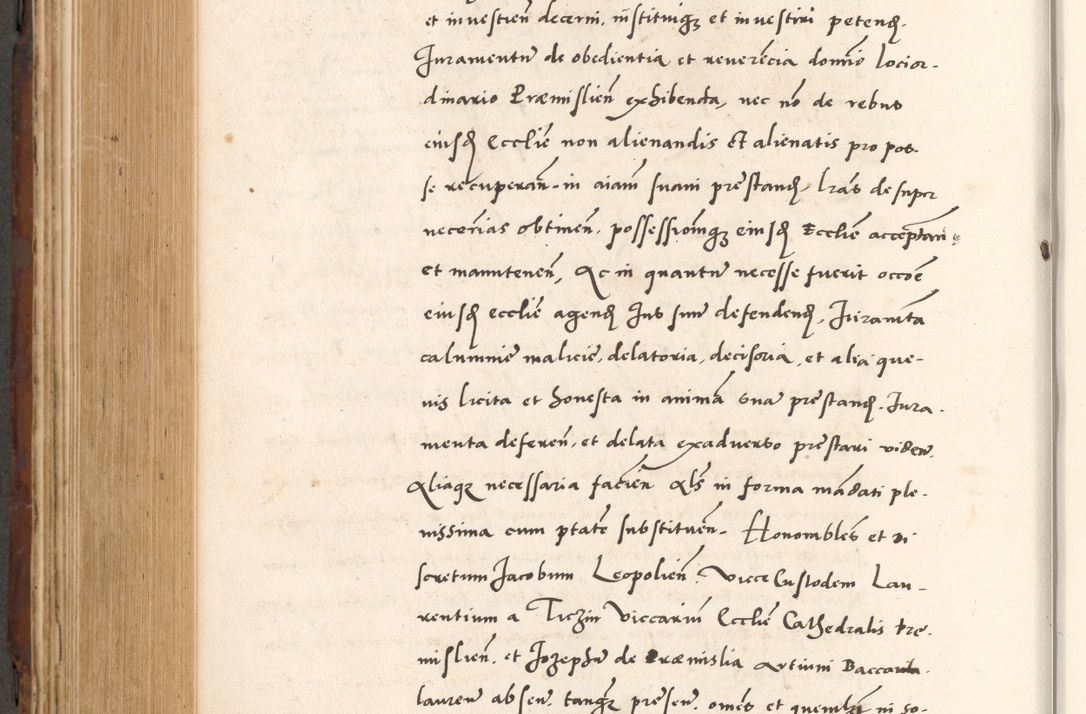 et investien̄ decerni, instituiq₃ et investiri petend.
Iuramentū de obedientia et reverēcia domīo locior-
dinario Præmislien̄ exhibenda, nec nō de rebus
eiusd Ecclīe non alienandis et alienatis pro pos-
se recuperan̄. in aīam suam prestand. l̄ras de super
necēnias obtinen̄. possessionq₃ eiusd Ecclīe acceptan
et manutenen̄, Ac in quantū necesse fuerit occōe
eiusd ecclīe agend Ius suū defendend, Iuramēta
calumnie malicie, delatoria, decisoria, et alia que-
vis licita et honesta in animā sua prestand. Iura-
menta deferen̄, et delata exadverso prestari viden.
Aliaq₃ necessaria facien̄ Al̄s in forma mādati ple-
nissima cum ptāte substituen̄. Honorabiles et di
scretum Jacobum Leopolien̄. Vicecustodem Lau-
rentium a Ticzin Viccariū Ecclīe Cathedralis Pre-
mislien̄. et Jozephū de Præmislia Artium Baccala-
laureū absen. tanq₃ presen. om̄es et quemlibet in so-